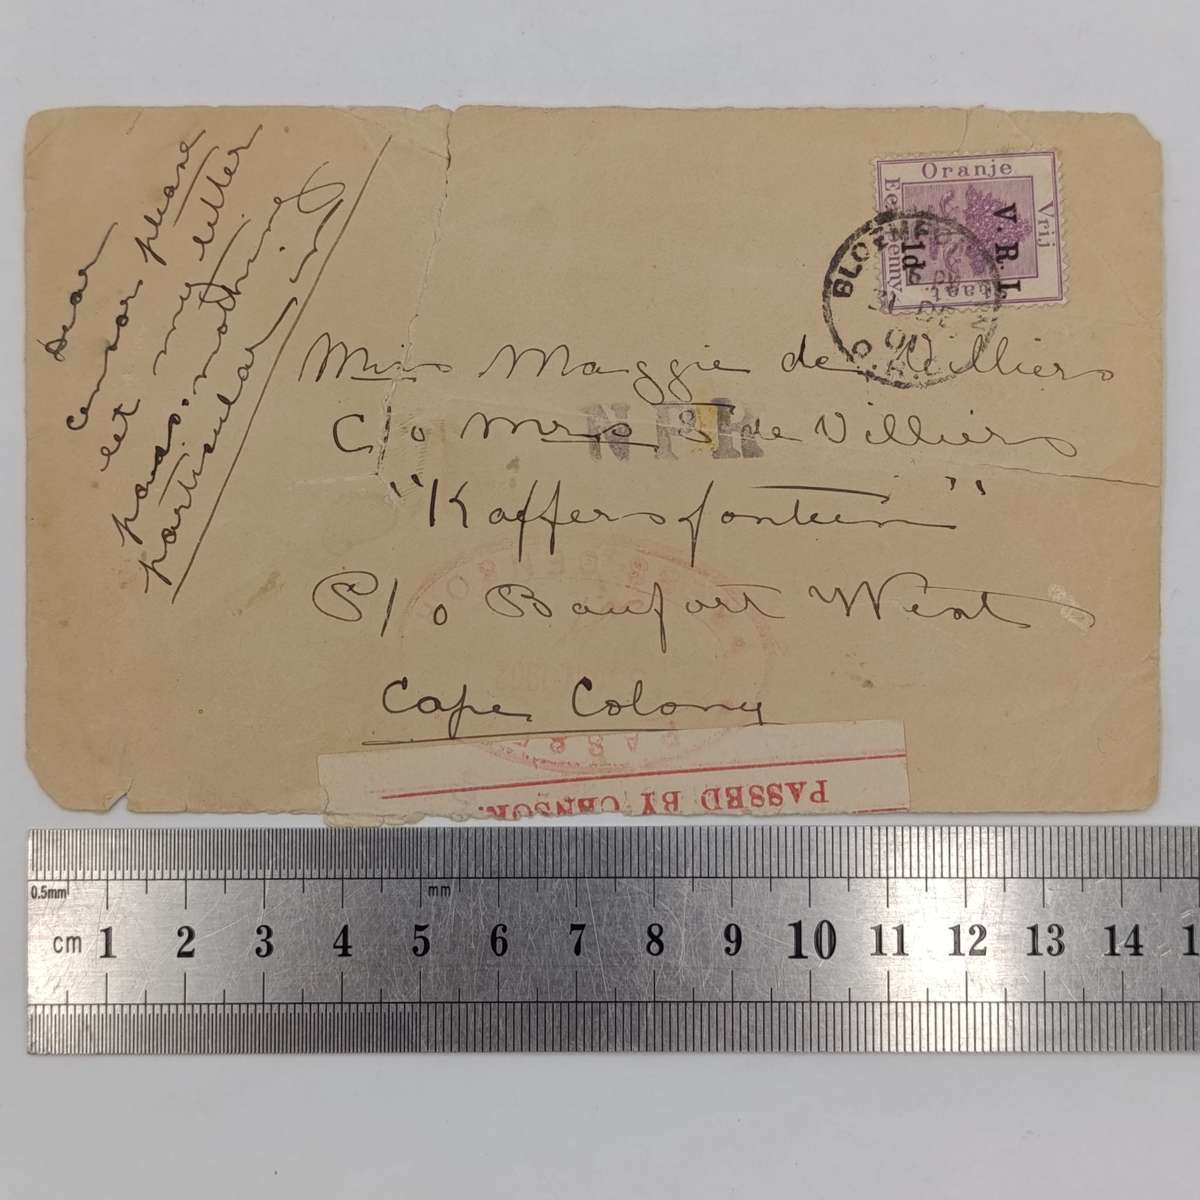 Dear
censor please
let my letter
pass. nothing
particular in
Oranje
Vrij
Een
Penny.
V. R. I.
1d
BLOEMF
O. R.
Miss Maggie de Villiers
C/o Mrs S de Villiers
NPR
"Kaffersfontein"
P/o Baufort West
Cape Colony
PASSED BY CENSOR.
0.5mm
mm
cm 1 2 3 4 5 6 7 8 9 10 11 12 13 14 1